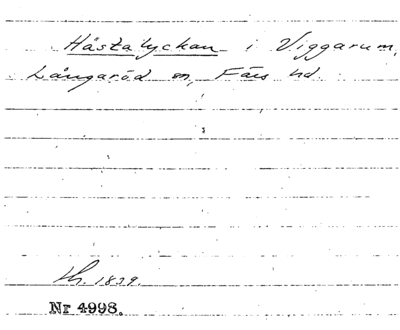 Hästalyckan i Viggarum,
Långaröd sn, Färs hd
Lh. 1839.
Nr 4998.